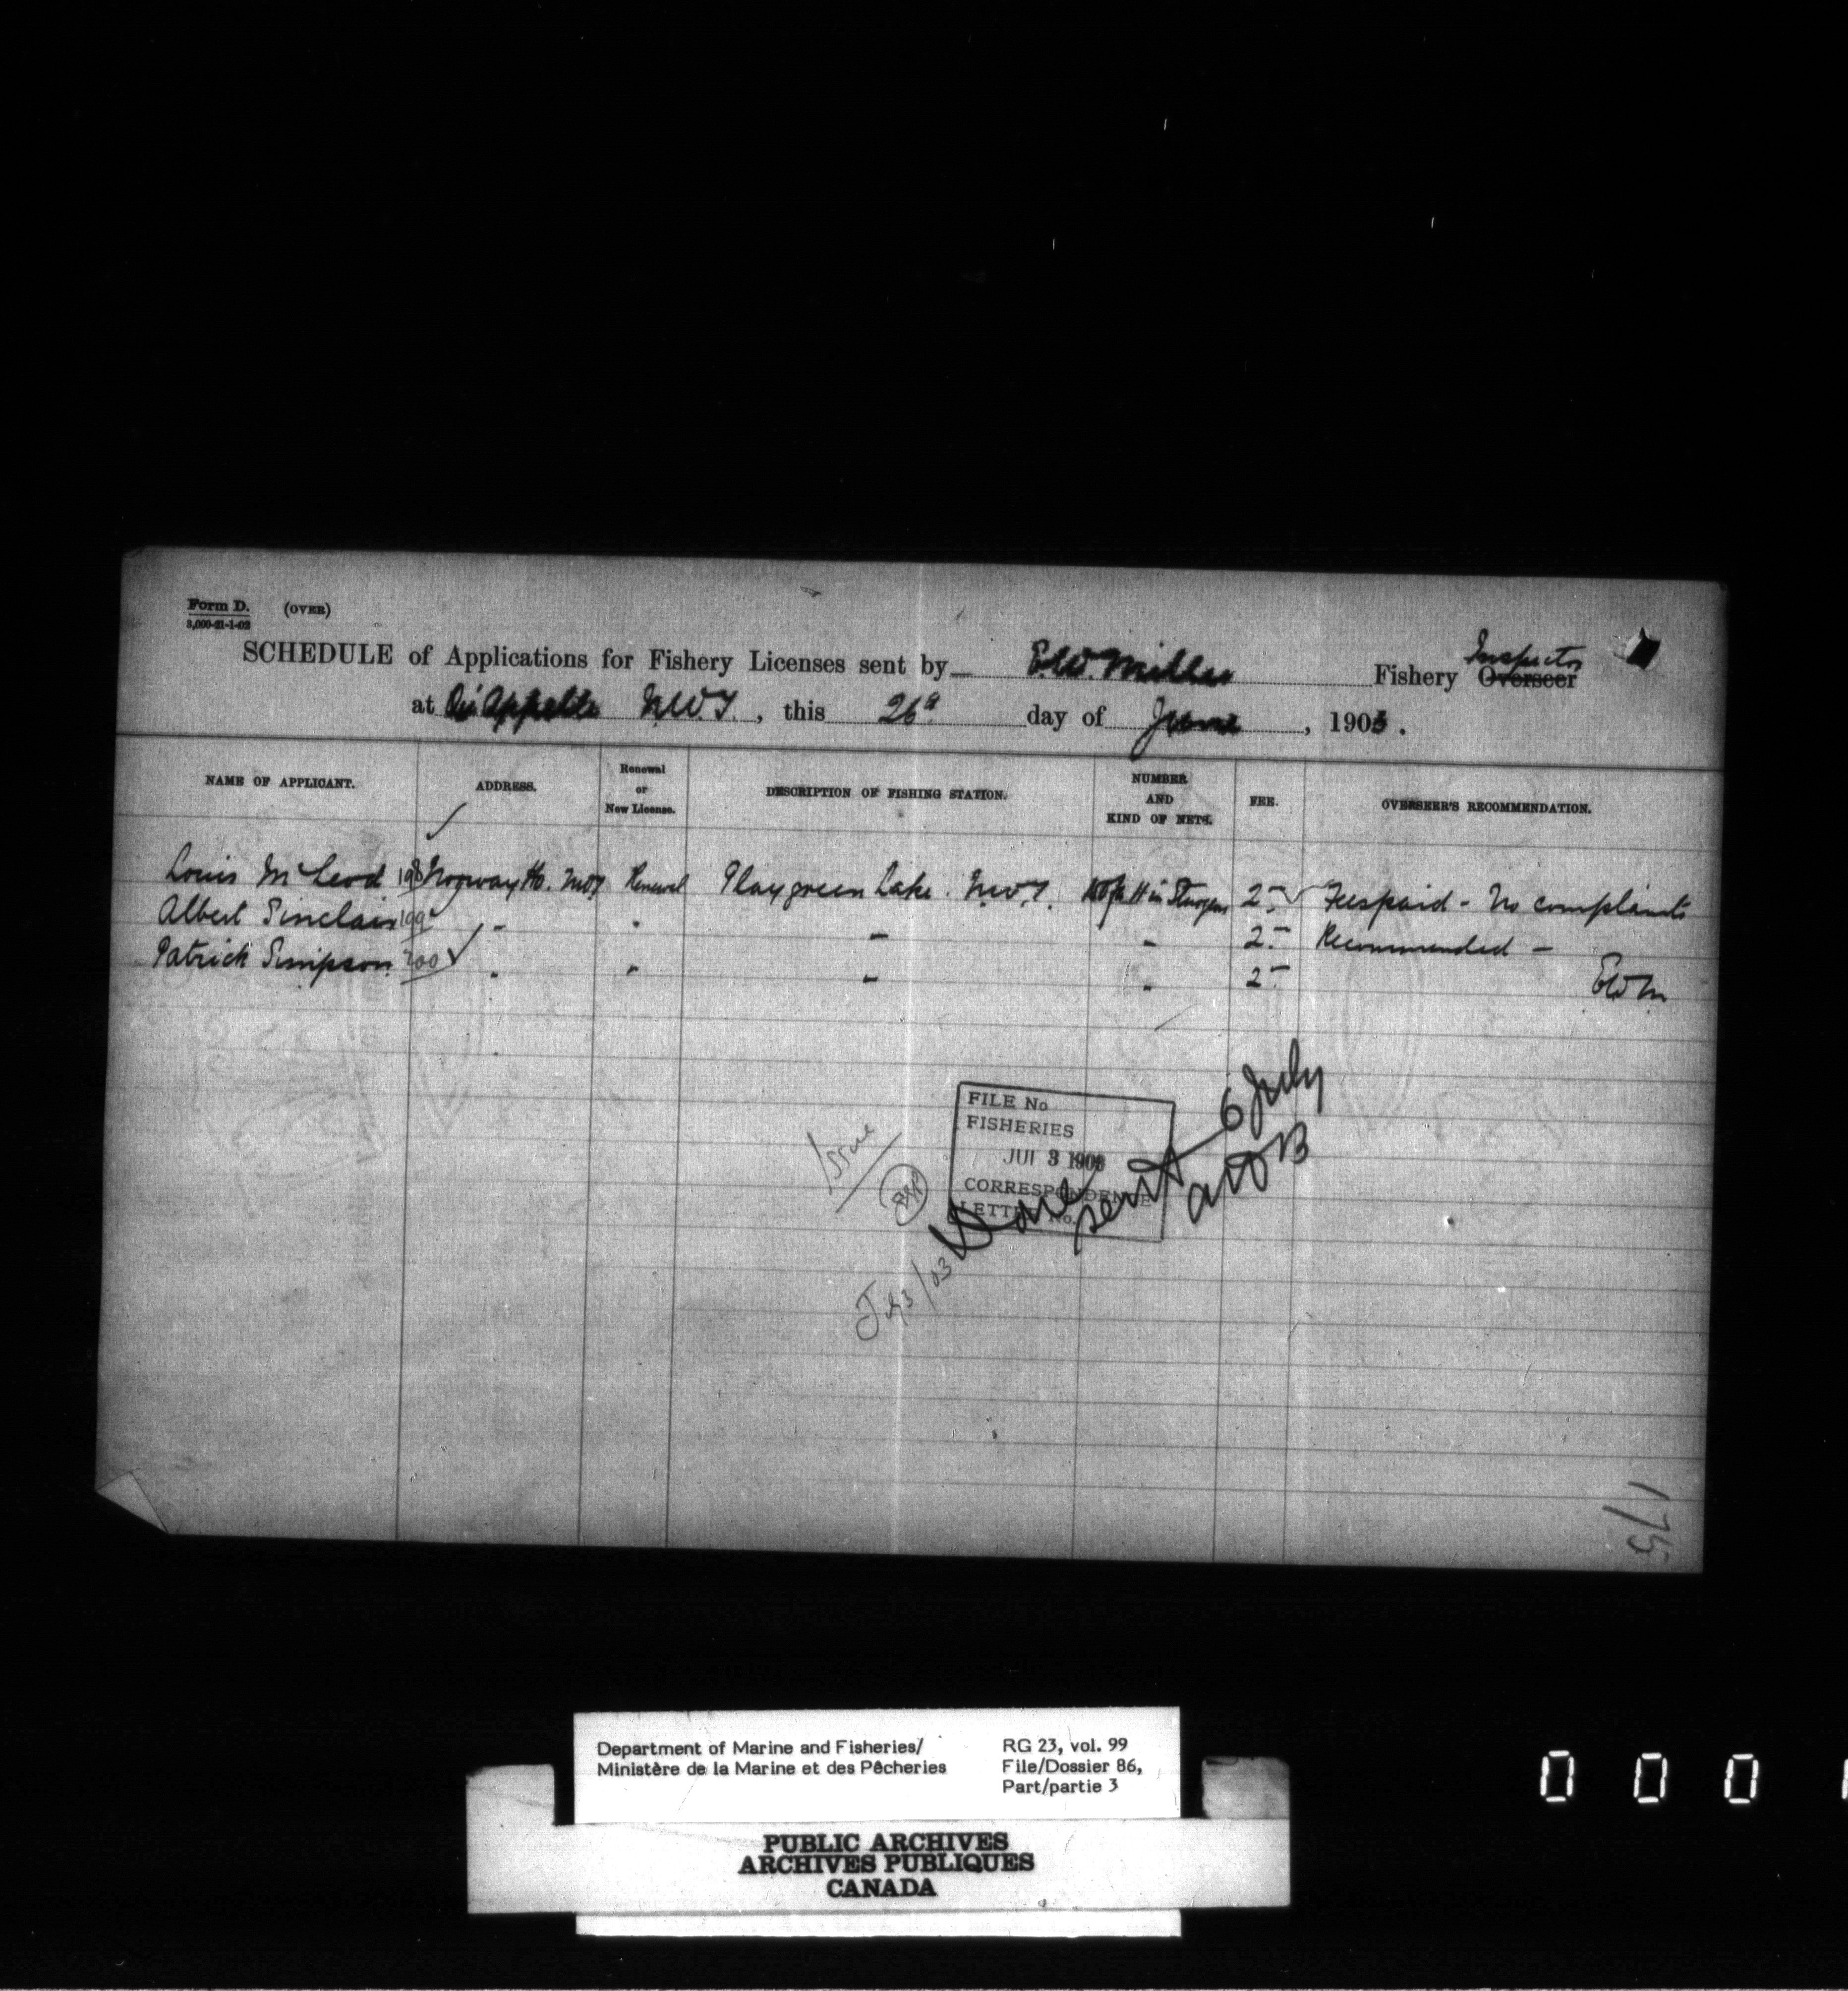 Form D. (OVER)
3,000-21-1-02
SCHEDULE of Applications for Fishery Licenses sent by E.W. Miller Fishery Overseer Inspector
at Qu'Appelle N.W.T., this 26th day of June, 1903.
NAME OF APPLICANT. ADDRESS. Renewal or New License. DESCRIPTION OF FISHING STATION. NUMBER AND KIND OF NETS. FEE. OVERSEER'S RECOMMENDATION.
Louis McLeod 198 Norway Ho. NWT Renewal Playgreen Lake. N.W.T. in Sturgeon 2.- Fees paid - No complaints
Albert Sinclair 199 " " " " 2.- Recommended -
Patrick Simpson 200 " " " " 2.- EWM
FILE No
FISHERIES
JUL 3 1903
CORRESPONDENCE
LETTER No.
Issue
July 3/03
sent 6 July
175
Department of Marine and Fisheries/
Ministère de la Marine et des Pêcheries
RG 23, vol. 99
File/Dossier 86,
Part/partie 3
PUBLIC ARCHIVES
ARCHIVES PUBLIQUES
CANADA
0 0 0